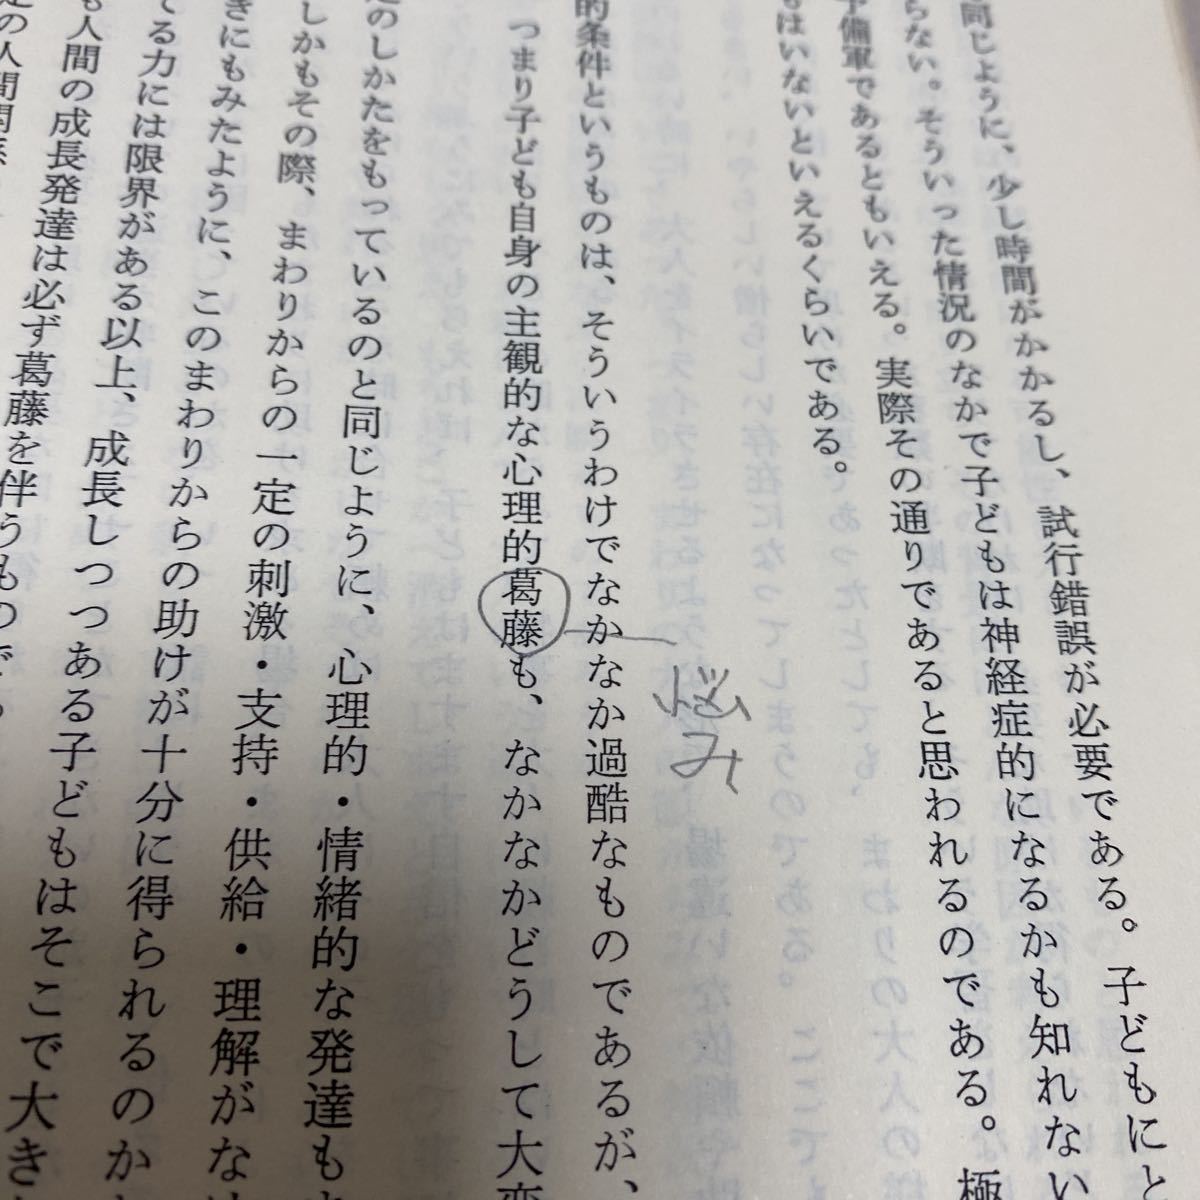 同じように、少し時間がかかるし、試行錯誤が必要である。子どもにと
らない。そういった情況のなかで子どもは神経症的になるかも知れない
予備軍であるともいえる。実際その通りであると思われるのである。極
もはいないといえるくらいである。
的条件というものは、そういうわけでなかなか過酷なものであるが、
つまり子ども自身の主観的な心理的葛藤も、なかなかどうして大変
悩み
定のしかたをもっているのと同じように、心理的・情緒的な発達も
しかもその際、まわりからの一定の刺激・支持・供給・理解がな
きにもみたように、このまわりからの助けが十分に得られるのか
てる力には限界がある以上、成長しつつある子どもはそこで大き
も人間の成長発達は必ず葛藤を伴うもので
の人間関係